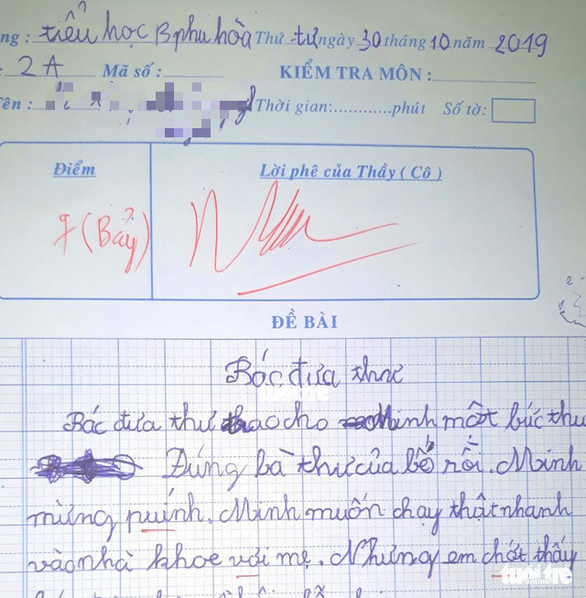 ng: tiểu học B phú hòa Thứ tư ngày 30 tháng 10 năm 2019
: 2A Mã số: KIỂM TRA MÔN:
ên: Thời gian:............phút Số tờ:
Điểm Lời phê của Thầy (Cô)
7 (Bảy)
ĐỀ BÀI
Bác đưa thư
Bác đưa thư trao cho Minh một bức thư
Đúng là thư của bố rồi. Minh
mừng puính. Minh muốn chạy thật nhanh
vào nhà khoe với mẹ. Nhưng em chợt thấy
tuổi trẻ
online